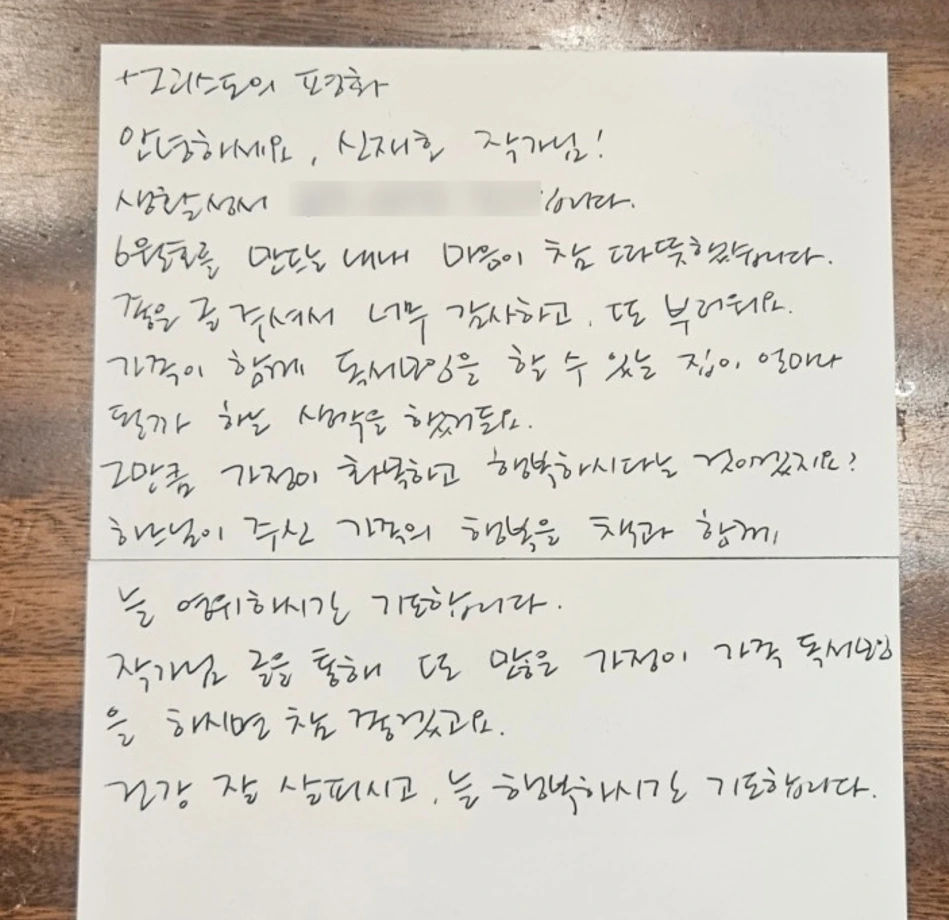 +그리스도의 평화
안녕하세요, 신재호 작가님!
생활성서 입니다.
6월호를 만드는 내내 마음이 참 따뜻했습니다.
좋은 글 주셔서 너무 감사하고, 또 부러워요.
가족이 함께 독서모임을 할 수 있는 집이 얼마나
될까 하는 생각을 했거든요.
그만큼 가정이 화목하고 행복하시다는 것이겠지요?
하느님이 주신 가족의 행복을 책과 함께
늘 영위하시길 기도합니다.
작가님 글을 통해 또 많은 가정이 가족 독서모임
을 하시면 참 좋겠고요.
건강 잘 살피시고, 늘 행복하시길 기도합니다.